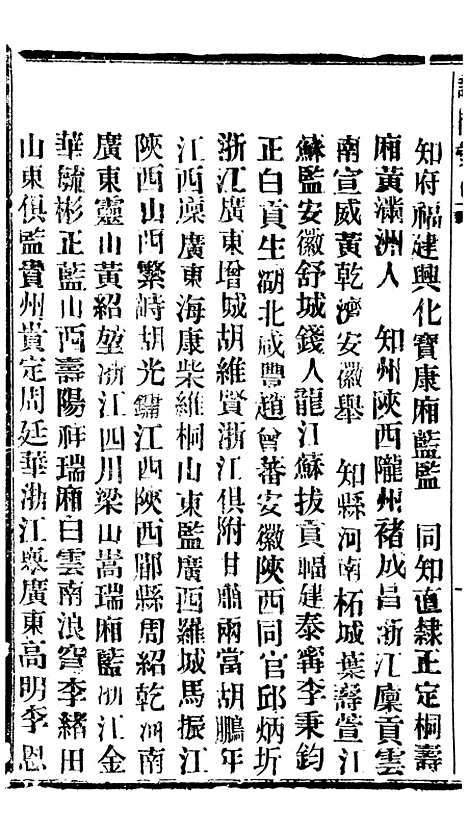 知府福建興化寶康廂藍監　同知直隸正定桐壽
廂黃滿洲人　知州陝西隴州褚成昌浙江廩貢雲
南宣威黃乾濟安徽舉　知縣河南柘城葉壽萱江
蘇監安徽舒城錢人龍江蘇拔貢福建泰寗李秉鈞
正白貢生湖北咸豐趙曾蕃安徽陝西同官邱炳圻
浙江廣東增城胡維賢浙江俱附甘肅兩當胡鵬年
江西廩廣東海康柴維桐山東監廣西羅城馬振江
陝西山西繁峙胡光鏽江西陝西郿縣周紹乾河南
廣東靈山黃紹堃浙江四川梁山嵩瑞廂藍浙江金
華毓彬正藍山西壽陽祥瑞廂白雲南浪穹李緒田
山東俱監貴州貴定周廷華浙江舉廣東高明李恩